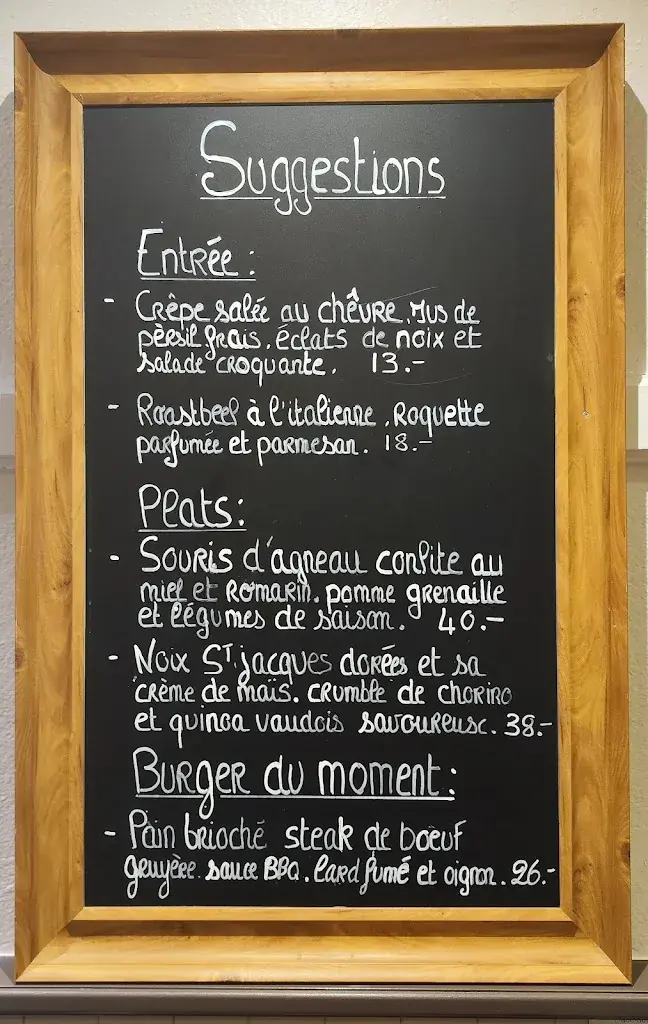 Suggestions
Entrée :
- Crêpe salée au chêvre. Jus de
pèrsil frais. éclats de noix et
salade croquante. 13.-
- Roastbeef à l'italienne. Roquette
parfumée et parmesan. 18.-
Plats :
- Souris d'agneau confite au
miel et Romarin. pomme grenaille
et légumes de saison. 40.-
- Noix St jacques dorées et sa
crème de maïs. crumble de chorizo
et quinoa vaudois savoureuse. 38.-
Burger du moment :
- Pain brioché steak de boeuf
gruyère. sauce BBQ. lard fumé et oignon. 26.-